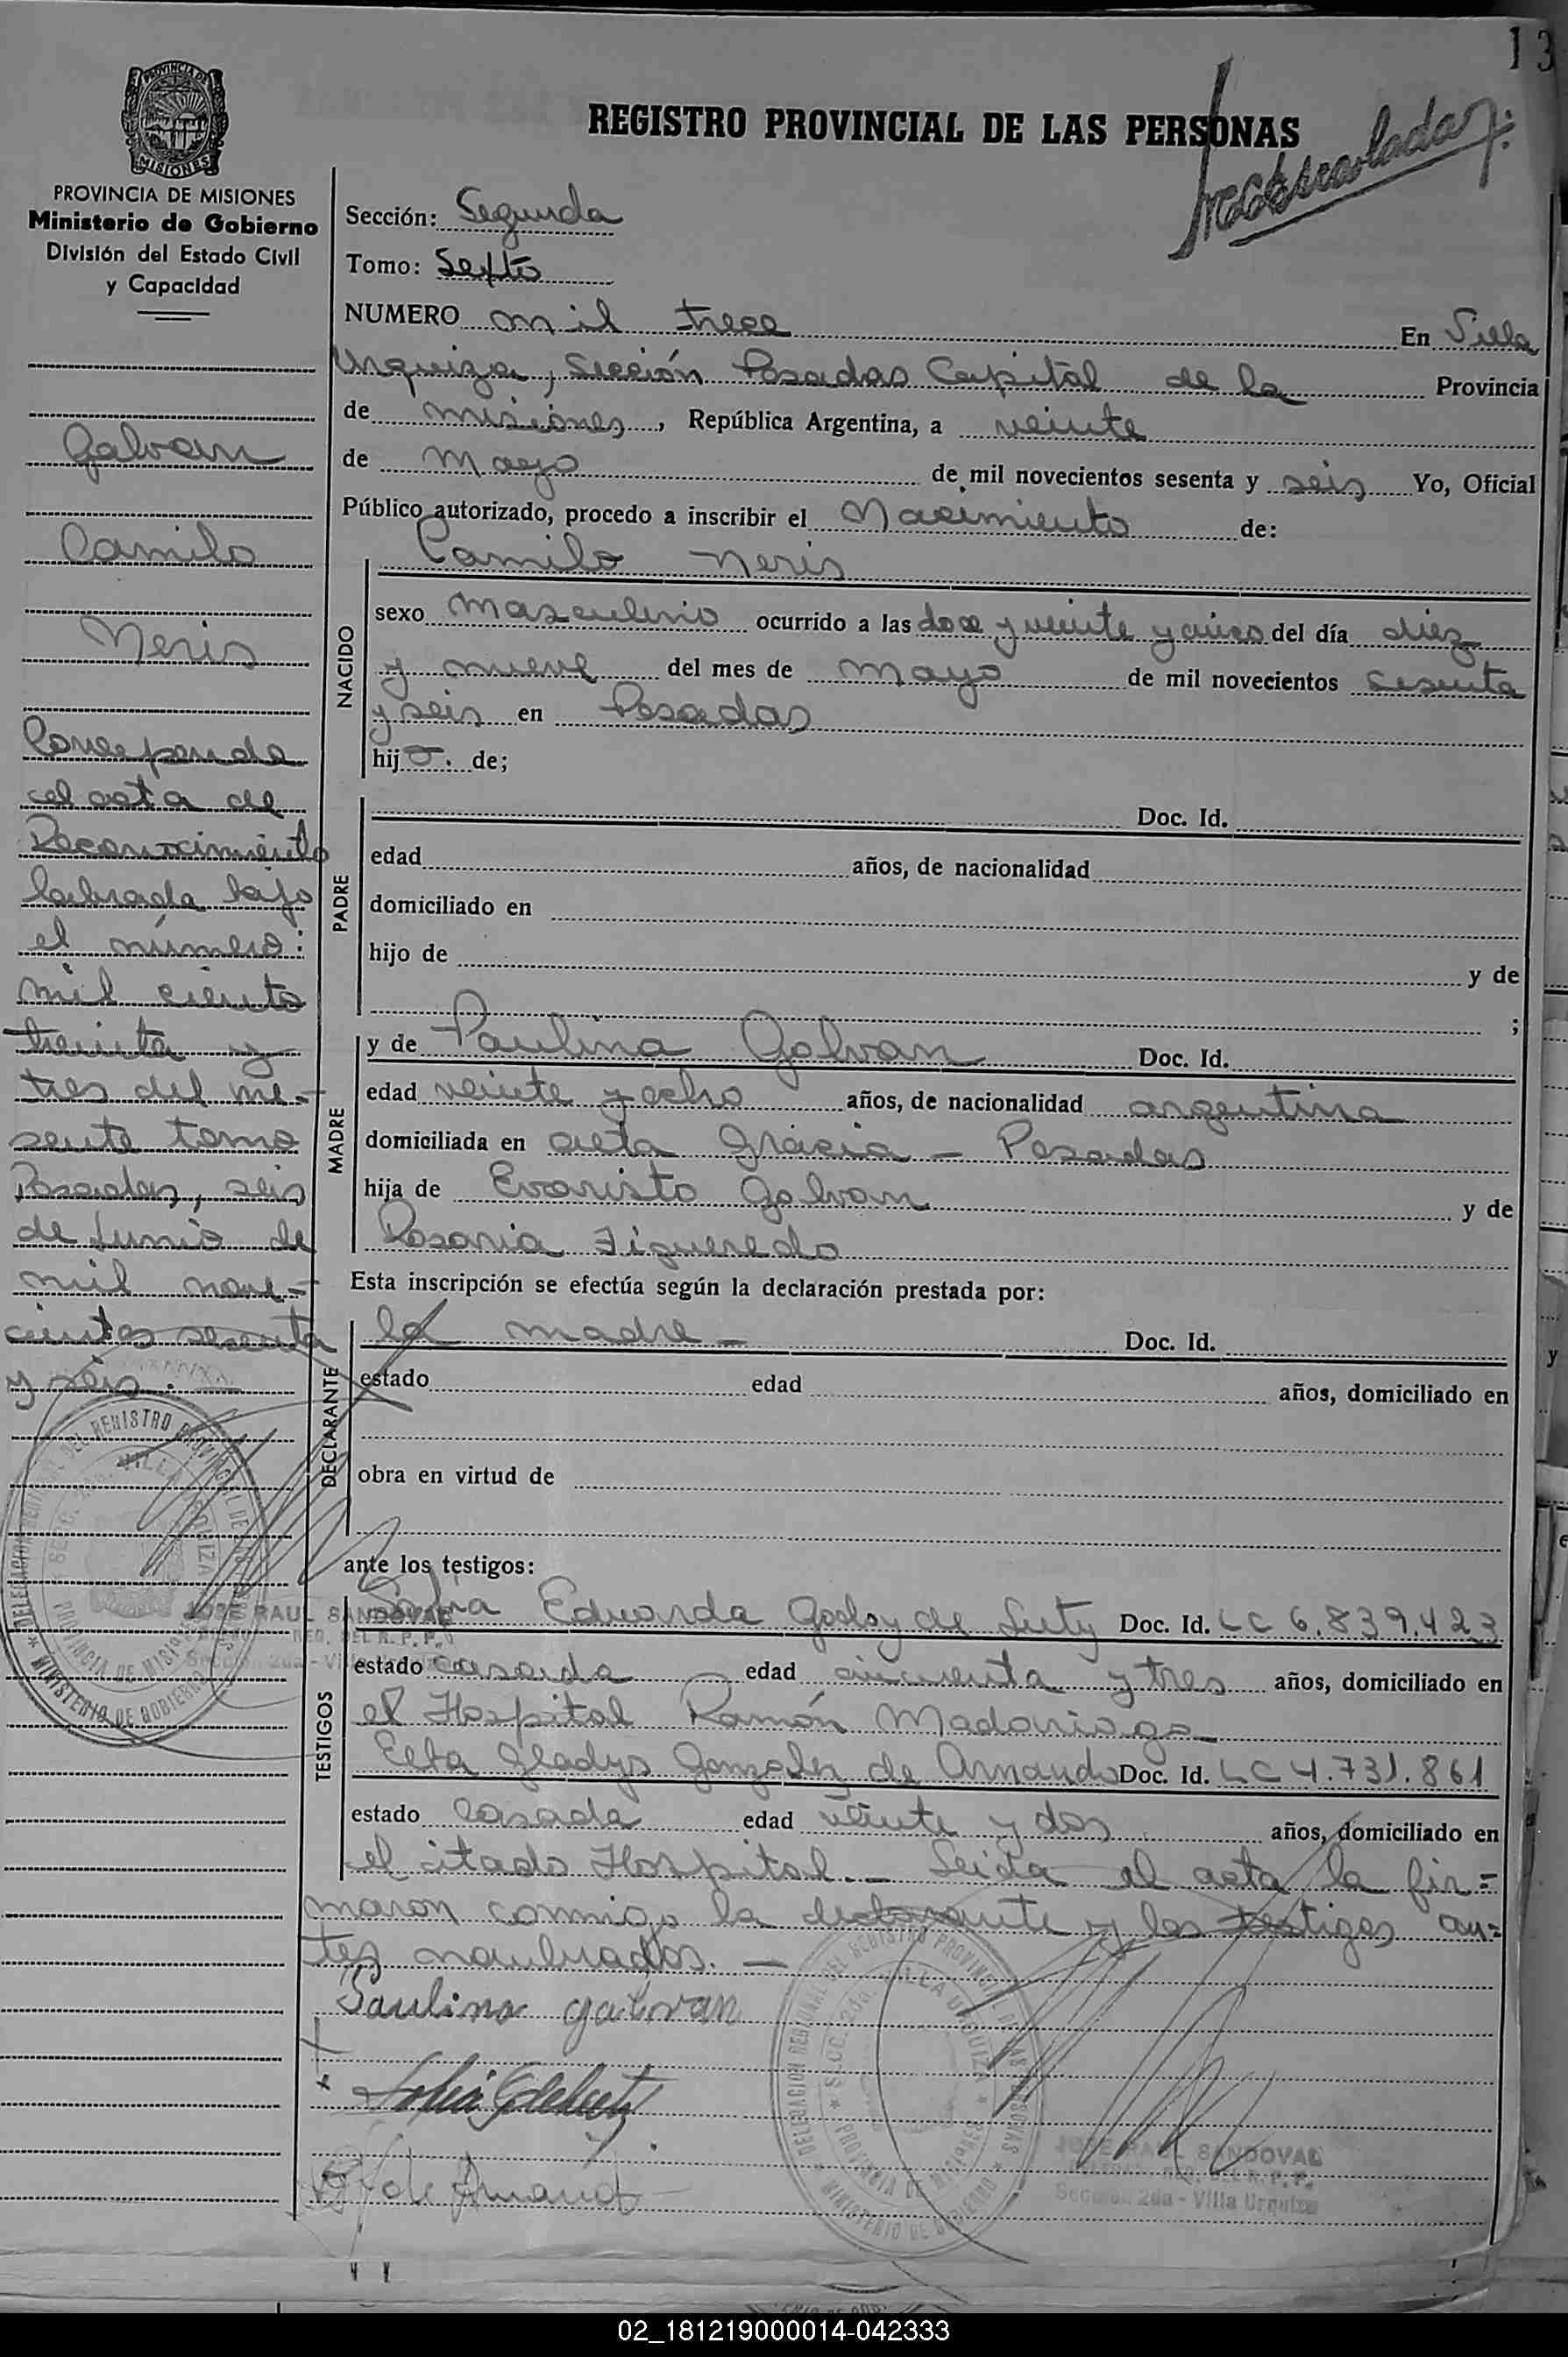 13
REGISTRO PROVINCIAL DE LAS PERSONAS
PROVINCIA DE MISIONES
Ministerio de Gobierno
División del Estado Civil
y Capacidad
Galvan
Camilo
Neris
Corresponde
al acta de
Reconocimiento
labrada bajo
el número:
mil ciento
treinta y
tres del
tomo
Posadas, seis
de Junio de
mil nove-
cientos sesenta
y seis.
Sección: Segunda
Tomo: Sexto
NUMERO mil trece En Villa
Urquiza, Sección Posadas Capital de la Provincia
de misiones, República Argentina, a veinte
de mayo de mil novecientos sesenta y seis Yo, Oficial
Público autorizado, procedo a inscribir el Nacimiento de:
NACIDO
Camilo Neris
sexo masculino ocurrido a las doce y veinte y cinco del día diez
y nueve del mes de mayo de mil novecientos sesenta
y seis en Posadas
hijo. de;
PADRE
Doc. Id.
edad años, de nacionalidad
domiciliado en
hijo de y de
;
MADRE
y de Paulina Galvan Doc. Id.
edad veinte y ocho años, de nacionalidad argentina
domiciliada en alta gracia - Posadas
hija de Evaristo Galvan y de
Rosaria Figueredo
Esta inscripción se efectúa según la declaración prestada por:
DECLARANTE
la madre - Doc. Id.
estado edad años, domiciliado en
obra en virtud de
ante los testigos:
TESTIGOS
Eduarda Godoy de Doc. Id. LC 6.839.423
estado casada edad cincuenta y tres años, domiciliado en
el Hospital Ramón Madariaga
Elba Gladys Gonzalez de Doc. Id. LC 4.731.861
estado casada edad veinte y dos años, domiciliado en
el citado Hospital. - Leida el acta la fir=
maron conmigo la declarante y los testigos an=
tes nombrados. -
Paulina galvan
DELEGACION REGIONAL DEL REGISTRO PROVINCIAL DE LAS PERSONAS
SECC. 2da. VILLA URQUIZA
PROVINCIA DE MISIONES
MINISTERIO DE GOBIERNO
JOSE RAUL SANDOVAL
REG. DEL R. P. P.
Sección 2da - Villa Urquiza
DELEGACION REGIONAL DEL REGISTRO PROVINCIAL DE LAS PERSONAS
SECC. 2da. VILLA URQUIZA
PROVINCIA DE MISIONES
MINISTERIO DE GOBIERNO
JOSE RAUL SANDOVAL
REG. DEL R. P. P.
Sección 2da - Villa Urquiza
02_181219000014-042333